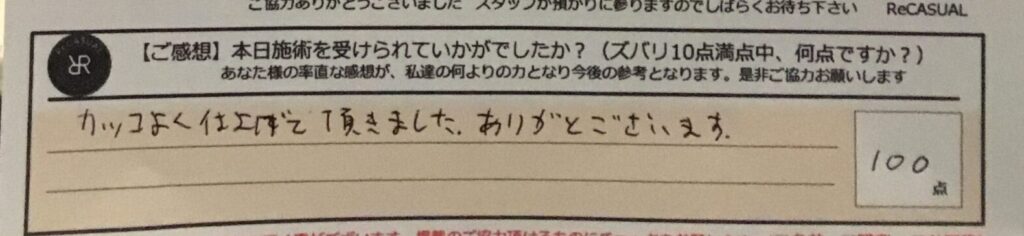 ご協力ありがとうございました スタッフが預かりに参りますのでしばらくお待ち下さい ReCASUAL
RECASUAL
R
【ご感想】本日施術を受けられていかがでしたか？（ズバリ10点満点中、何点ですか？）
あなた様の率直な感想が、私達の何よりの力となり今後の参考となります。是非ご協力お願いします
カッコよく仕上げて頂きました。ありがとうございます。
100
点